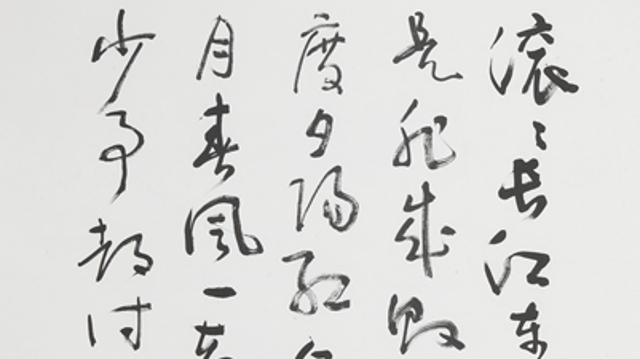 滚〻长江东
是非成败
度夕阳红
月春风一壶
少事都付